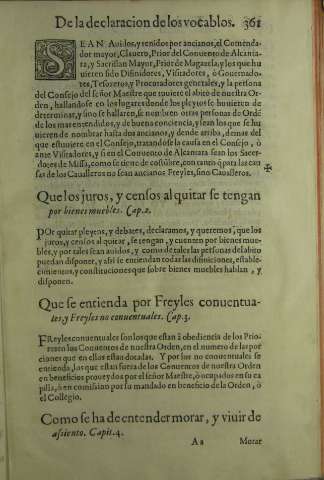 De la declaracion de los vocablos. 361
SEAN Auidos, y tenidos por ancianos, el Comenda-
dor mayor, Clauero, Prior del Conuento de Alcanta-
ra, y Sacristan Mayor, Prior de Magazela, y los que hu
uieren sido Difinidores, Visitadores, ò Gouernado-
res, Tesoreros, y Procuradores generales, y la persona
del Consejo del señor Maestre que tuuiere el abito de nuestra Or-
den, hallandose en los lugares donde los pleytos se huuieren de
determinar, y sino se hallaren, se nombren otras personas de Ordẽ
de los mas entendidos, y de buena conciencia, y sean los que se hu
uieren de nombrar hasta dos ancianos, y dende arriba, demas del
que estuuiere en el Consejo, tratandose la causa en el Consejo, ò
ante Visitadores, y si en el Conuento de Alcantara sean los Sacer-
dotes de Missa, como se tiene de costũbre, con tanto q̃ para las cau
sas de los Caualleros no sean ancianos Freyles, sino Caualleros.
Que los juros, y censos al quitar se tengan
por bienes muebles. Cap. 2.
POr quitar pleytos, y debates, declaramos, y queremos, que los
juros, y censos al quitar, se tengan, y cuenten por bienes mue-
bles, y por tales sean auidos, y como de tales las personas del abito
puedan disponer, y assi se entiendan todas las difiniciones, estable-
cimientos, y constituciones que sobre bienes muebles hablan, y
disponen.
Que se entienda por Freyles conuentua-
les, y Freyles no conuentuales. Cap. 3.
FReyles conuentuales son los que estan à obediencia de los Prio-
res en los Conuentos de nuestra Orden, en el numero de las por
ciones que en ellos estan dotadas. Y por los no conuentuales se
entienda, los que estàn fuera de los Conuentos de nuestra Orden
en beneficios proueydos por el señor Maestre, ò ocupados en su ca
pilla, ò en comission por su mandado en beneficio de la Orden, ò
el Collegio.
Como se ha de entender morar, y viuir de
assiento. Capit. 4.
Aa Morar